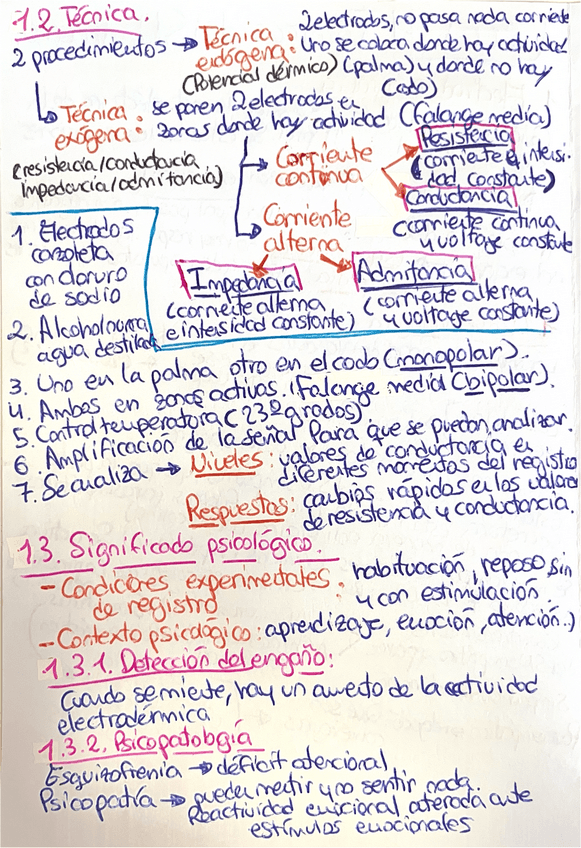 1.2. Técnica.
2 procedimientos → Técnica endógena: 2 electrodos, no pasa nada corriente
Uno se coloca donde hay actividad
(Potencial dérmico) (palma) y donde no hay
(codo)
↳ Técnica exógena: se ponen 2 electrodos en
zonas donde hay actividad (falange media)
(resistencia/conductancia
impedancia/admitancia)
→ Corriente
continua
Resistencia
(corriente e intensi-
dad constante)
Conductancia
(corriente continua
y voltage constante
→ Corriente
alterna
Impedancia
(corriente alterna
e intensidad constante)
Admitancia
(corriente alterna
y voltage constante)
1. Electrodos
cazoleta
con cloruro
de sodio
2. Alcohol
agua destilada
3. Uno en la palma otro en el codo (monopolar).
4. Ambos en zonas activas. (Falange media) (bipolar).
5. Control temperatura (23º grados)
6. Amplificación de la señal para que se puedan analizar.
7. Se analiza → Niveles: valores de conductancia en
diferentes momentos del registro
Respuestas: cambios rápidos en los valores
de resistencia y conductancia.
1.3. Significado psicológico.
- Condiciones experimentales: habituación, reposo sin
de registro y con estimulación
- Contexto psicológico: aprendizaje, emoción, atención..)
1.3.1. Detección del engaño:
Cuando se miente, hay un aumento de la actividad
electrodérmica
1.3.2. Psicopatología
Esquizofrenia → déficit atencional
Psicopatía → pueden mentir y no sentir nada.
Reactividad emocional alterada ante
estímulos emocionales